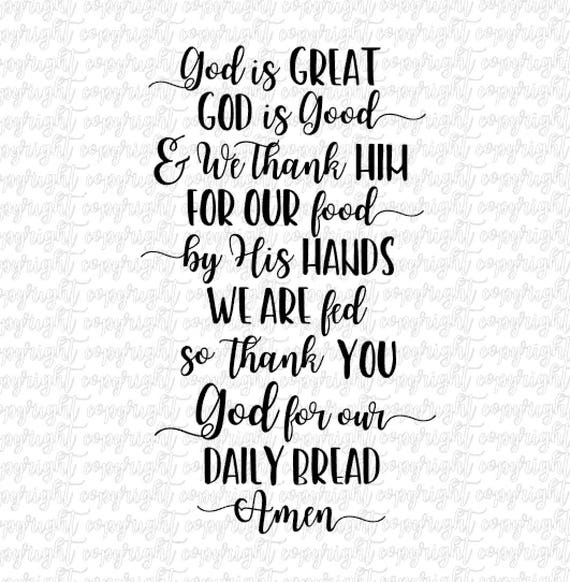 God is GREAT
GOD is Good
& We Thank HIM
FOR OUR food
by His HANDS
WE ARE fed
so Thank YOU
God for our
DAILY BREAD
Amen